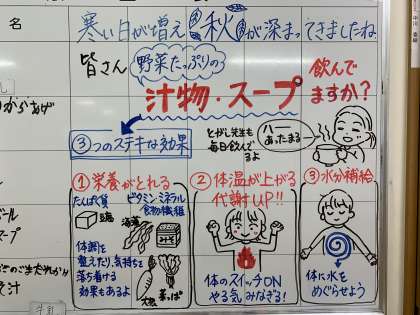 名
寒い日が増え 秋が深まってきましたね
皆さん
野菜たっぷりの
汁物・スープ
飲んで
ますか？
③つのステキな効果
とがし先生も
毎日飲んで
るよ
ハー
あったまる
①栄養がとれる
たんぱく質
ビタミン ミネラル
食物繊維
豆腐
海藻
みそ
体調を
整えたり、気持ちを
落ち着ける
効果もあるよ
大根
菜っぱ
②体温が上がる
代謝UP!!
体のスイッチON
やる気みなぎる!
③水分補給
体に水を
めぐらせよう
スープ